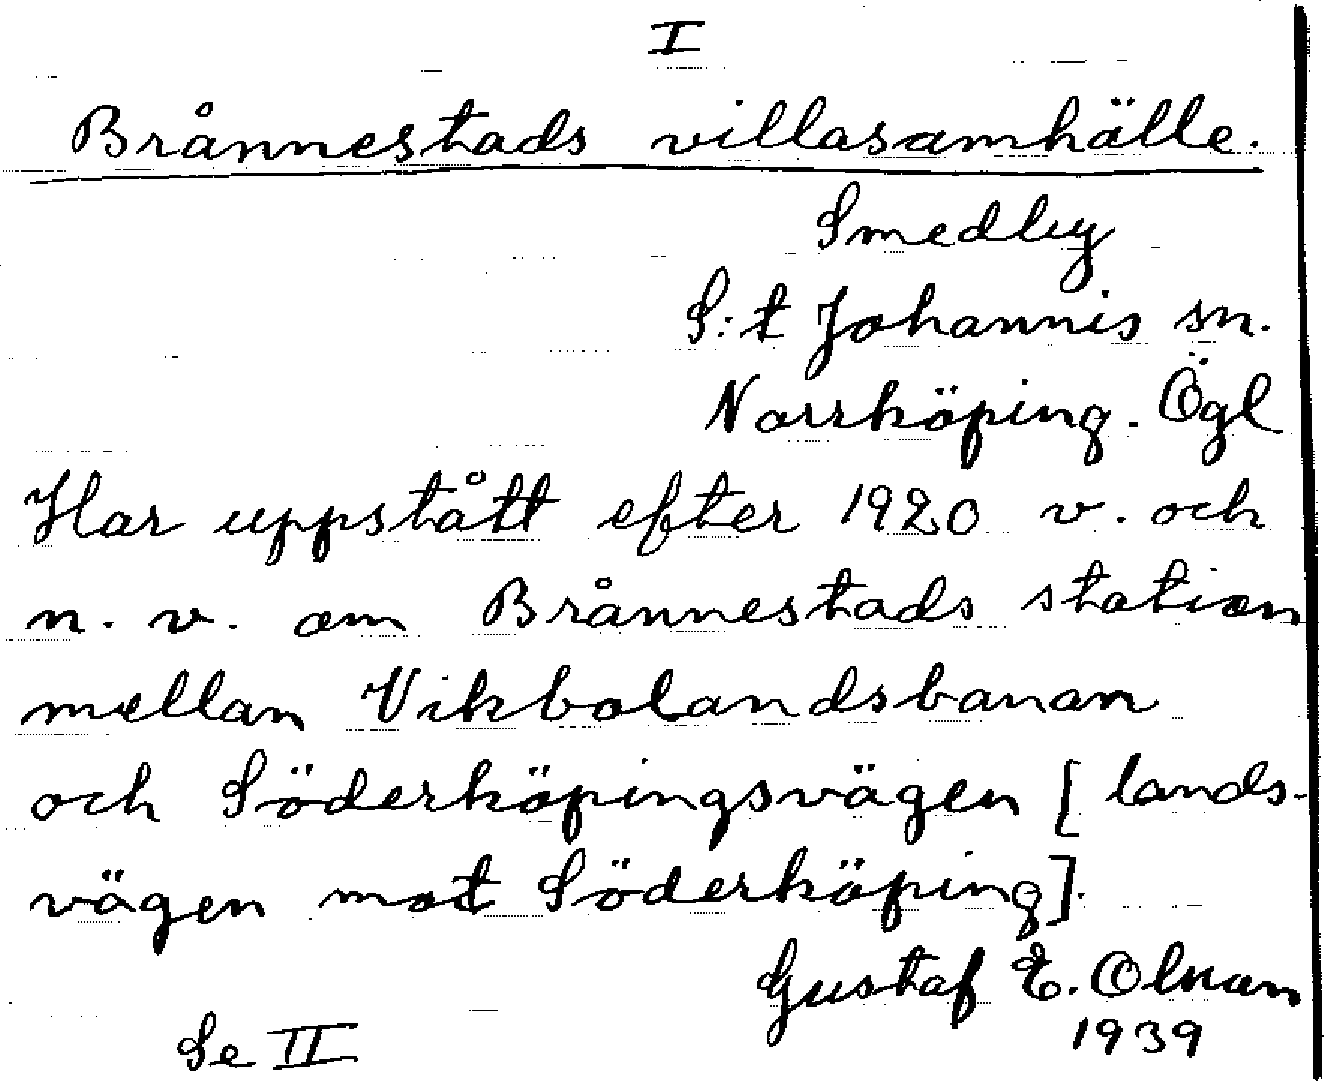 I
Brånnestads villasamhälle.
Smedby
S:t Johannis sn.
Norrköping. Ögl
Har uppstått efter 1920 v. och
n. v. om Brånnestads station
mellan Vikbolandsbanan
och Söderköpingsvägen [lands-
vägen mot Söderköping].
Gustaf E. Olsson
1939
Se II